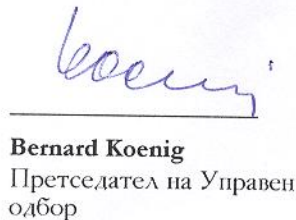 Koenig
Bernard Koenig
Претседател на Управен
одбор